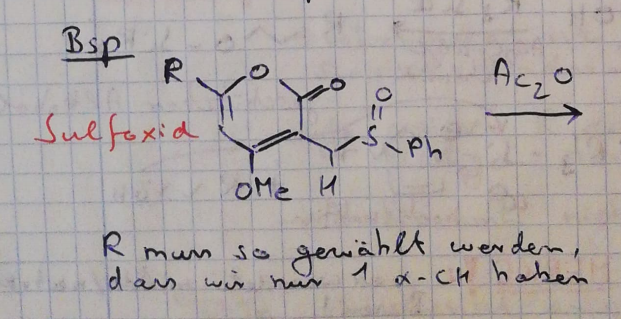 Bsp
R O O
Ac2O
O
Sulfoxid
S Ph
OMe H
R muss so gewählt werden,
dass wir nur 1 α-CH haben